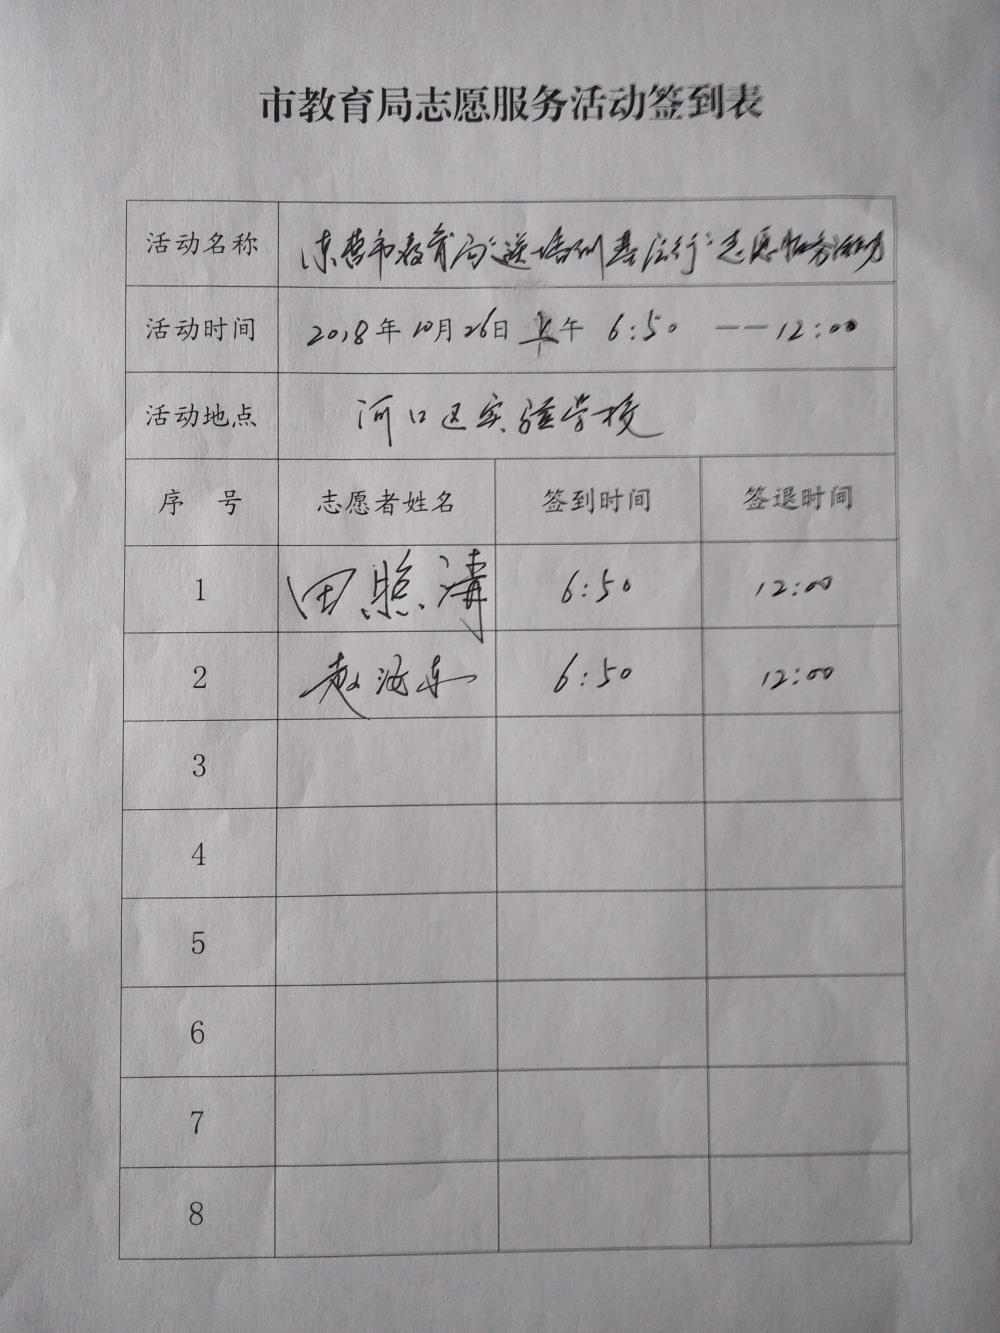 市教育局志愿服务活动签到表
活动名称 东营市教育局“送培训基层行”志愿服务活动
活动时间 2018年10月26日 上午 6:50 ——12:00
活动地点 河口区实验学校
序 号 志愿者姓名 签到时间 签退时间
1 田照清 6:50 12:00
2 赵海东 6:50 12:00
3
4
5
6
7
8